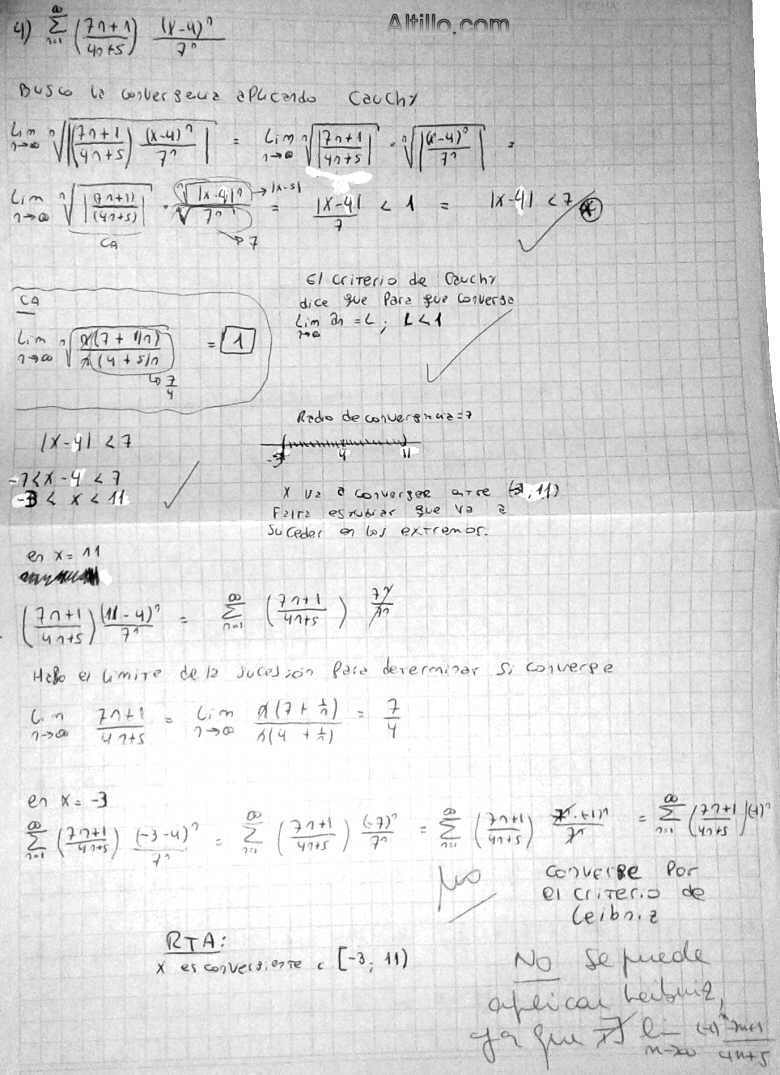 Altillo.com
4) ∞ Σ n=1 (7n+1 / 4n+5) (x-4)^n / 7^n
Busco la convergencia aplicando Cauchy
Lim n→∞ ⁿ√|(7n+1 / 4n+5) (x-4)^n / 7^n| = Lim n→∞ ⁿ√|7n+1 / 4n+5| · ⁿ√|(x-4)^n / 7^n| =
Lim n→∞ ⁿ√|(7n+1) / (4n+5)| · ⁿ√|x-4|^n / ⁿ√7^n = |x-4| / 7 < 1 = |x-4| < 7 *
→ |x-5|
CA
→ 7
El criterio de Cauchy
dice que para que converga
Lim n→∞ an = L ; L < 1
CA
Lim n→∞ ⁿ√n(7 + 1/n) / n(4 + 5/n) = 1
→ 7/4
|x-4| < 7
-7 < x-4 < 7
-3 < x < 11
Radio de convergencia = 7
-3 4 11
x va a converger entre (-3, 11)
Falta estudiar que va a
suceder en los extremos.
en x = 11
(7n+1 / 4n+5) (11-4)^n / 7^n = ∞ Σ n=1 (7n+1 / 4n+5) 7^n / 7^n
Hago el limite de la sucesión para determinar si converge
Lim n→∞ 7n+1 / 4n+5 = Lim n→∞ n(7 + 1/n) / n(4 + 1/n) = 7/4
en x = -3
∞ Σ n=1 (7n+1 / 4n+5) (-3-4)^n / 7^n = ∞ Σ n=1 (7n+1 / 4n+5) (-7)^n / 7^n = ∞ Σ n=1 (7n+1 / 4n+5) 7^n·(-1)^n / 7^n = ∞ Σ n=1 (7n+1 / 4n+5) (-1)^n
No
converge por
el criterio de
Leibniz
RTA:
x es convergente ε [-3; 11)
NO se puede
aplicar Leibniz,
ya que ∄ lim n→∞ (-1)^n 7n+1 / 4n+5